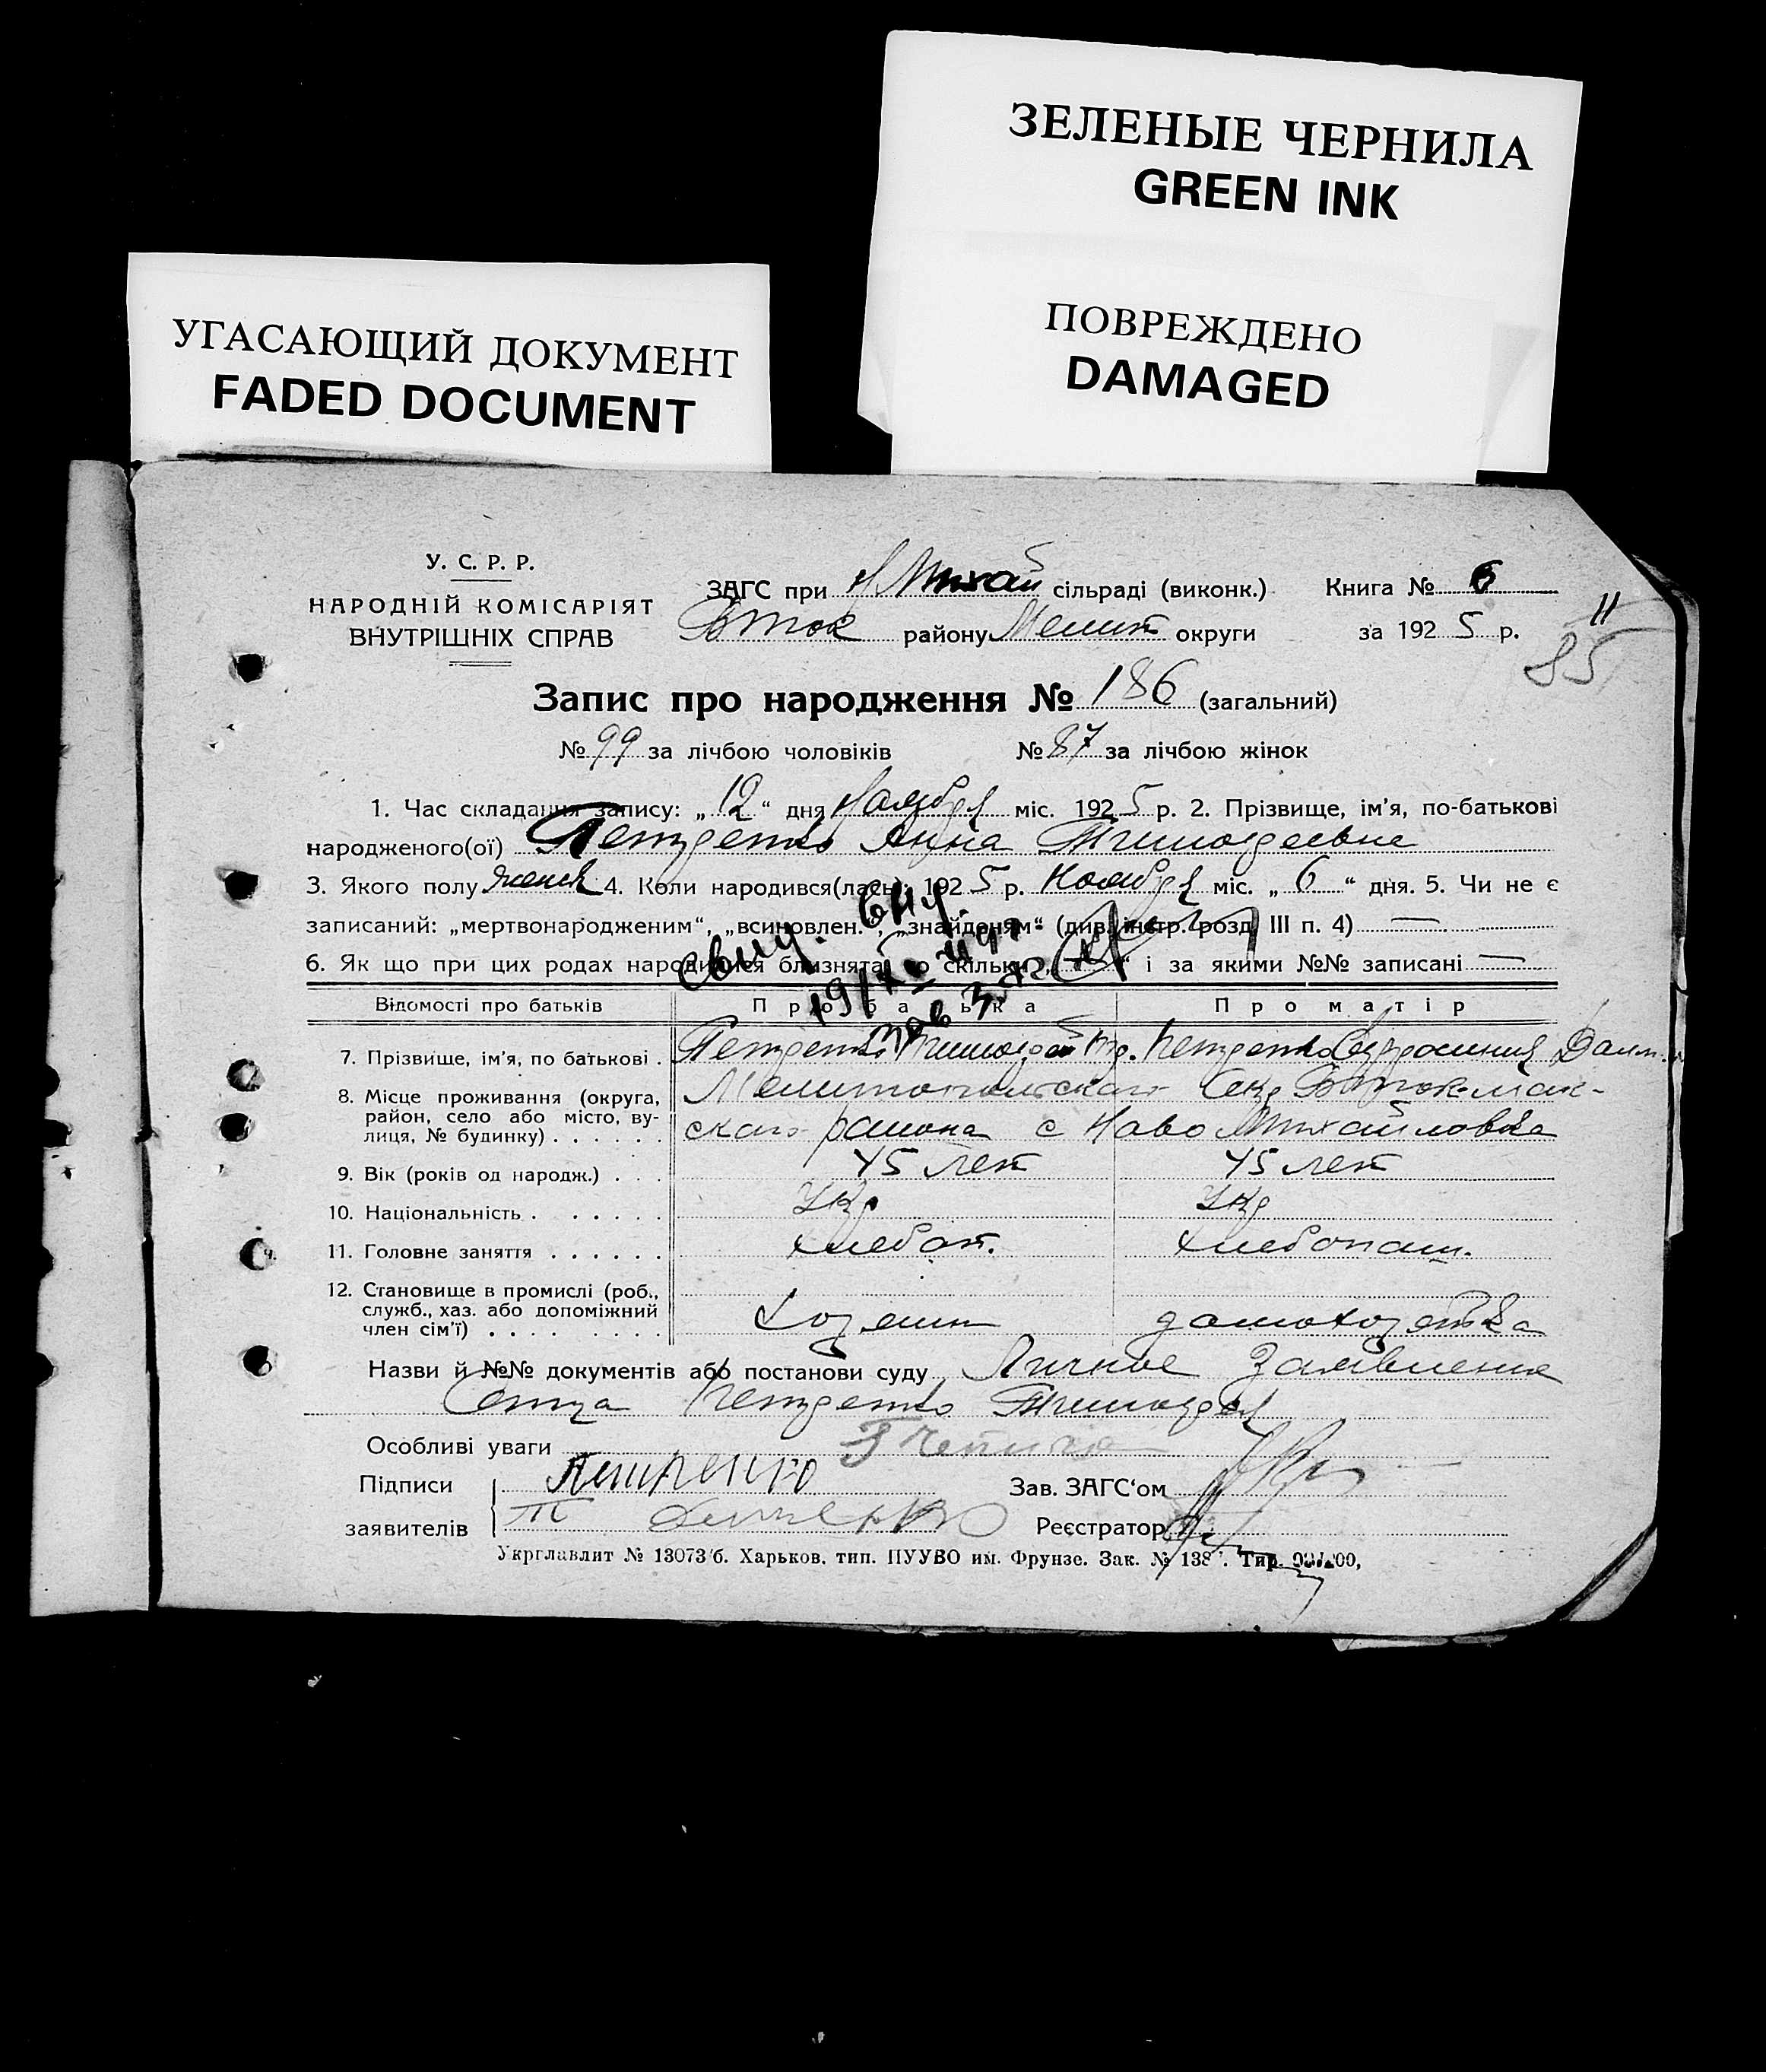 ЗЕЛЕНЫЕ ЧЕРНИЛА
GREEN INK
ПОВРЕЖДЕНО
DAMAGED
УГАСАЮЩИЙ ДОКУМЕНТ
FADED DOCUMENT
У. С. Р. Р.
НАРОДНІЙ КОМІСАРІЯТ
ВНУТРІШНІХ СПРАВ
ЗАГС при Н Михай сільраді (виконк.)
Бток району Мелит округи
Книга № 6
за 1925 р.
11
85
Запис про народження № 186 (загальний)
№ 99 за лічбою чоловіків № 87 за лічбою жінок
1. Час складання запису: „12“ дня Ноября міс. 1925 р. 2. Прізвище, ім’я, по-батькові
народженого(ої) Анна Тимофеевна
3. Якого полу женск 4. Коли народився(лась): 1925 р. Ноября міс. „6“ дня. 5. Чи не є
записаний: „мертвонародженим“, „всиновлен.“, „знайденям“ (див. інстр. розд. III п. 4) —
6. Як що при цих родах народилися близнята, то скільки „—“ і за якими №№ записані —
Відомості про батьків
Про батька
Про матір
7. Прізвище, ім’я, по батькові . Тимофей
8. Місце проживання (округа, Мелитопольского Окр Б Токмак-
район, село або місто, ву-
лиця, № будинку) . . . . . . ского района с Ново Михайловка
9. Вік (років од народж.) . . . 45 лет 45 лет
10. Національність . . . . . . Укр Укр
11. Головне заняття . . . . . . хлебоп. хлебопаш.
12. Становище в промислі (роб.,
служб., хаз. або допоміжний
член сім’ї) . . . . . . . . хозяин домохозяйка
Назви й №№ документів або постанови суду Личное Заявление
Отца Тимофея
Особливі уваги
Підписи
заявителів
Зав. ЗАГС‘ом
Реєстратор
Укрглавлит № 13073/б. Харьков, тип. ПУУВО им. Фрунзе. Зак. № 138 Тир.